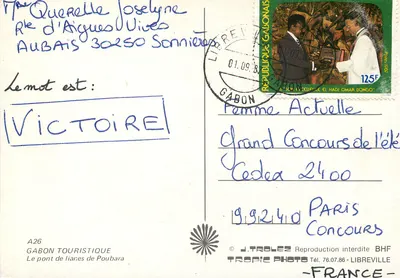 Mme Querelle Joselyne
Rte d'Aigues Vives
AUBAIS 30250 Sommières
Le mot est :
VICTOIRE
A26
GABON TOURISTIQUE
Le pont de lianes de Poubara
REPUBLIQUE GABONAISE
125F
EL HADJ OMAR BONGO
LIBREVI
01.09.8
GABON
Femme Actuelle
Grand Concours de l'été
Cedex 2400
99240 PARIS
Concours
© J.TROLEZ Reproduction interdite BHF
TROPIC PHOTO Tél. 76.07.86 - LIBREVILLE
-FRANCE-